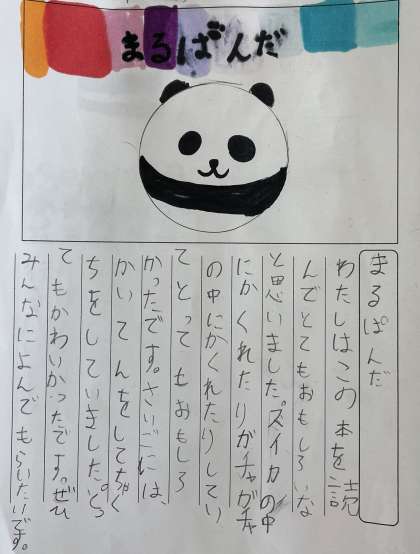 まるぱんだ
まるぱんだ
わたしはこの本を読
んでとてもおもしろいな
と思いました。スイカの中
にかくれたりガチャガチャ
の中にかくれたりしてい
てとってもおもしろ
かったです。さいごには、
かいてんをしてちゃく
ちをしていきした。とっ
てもかわいかったです。ぜひ
みんなによんでもらいたいです。